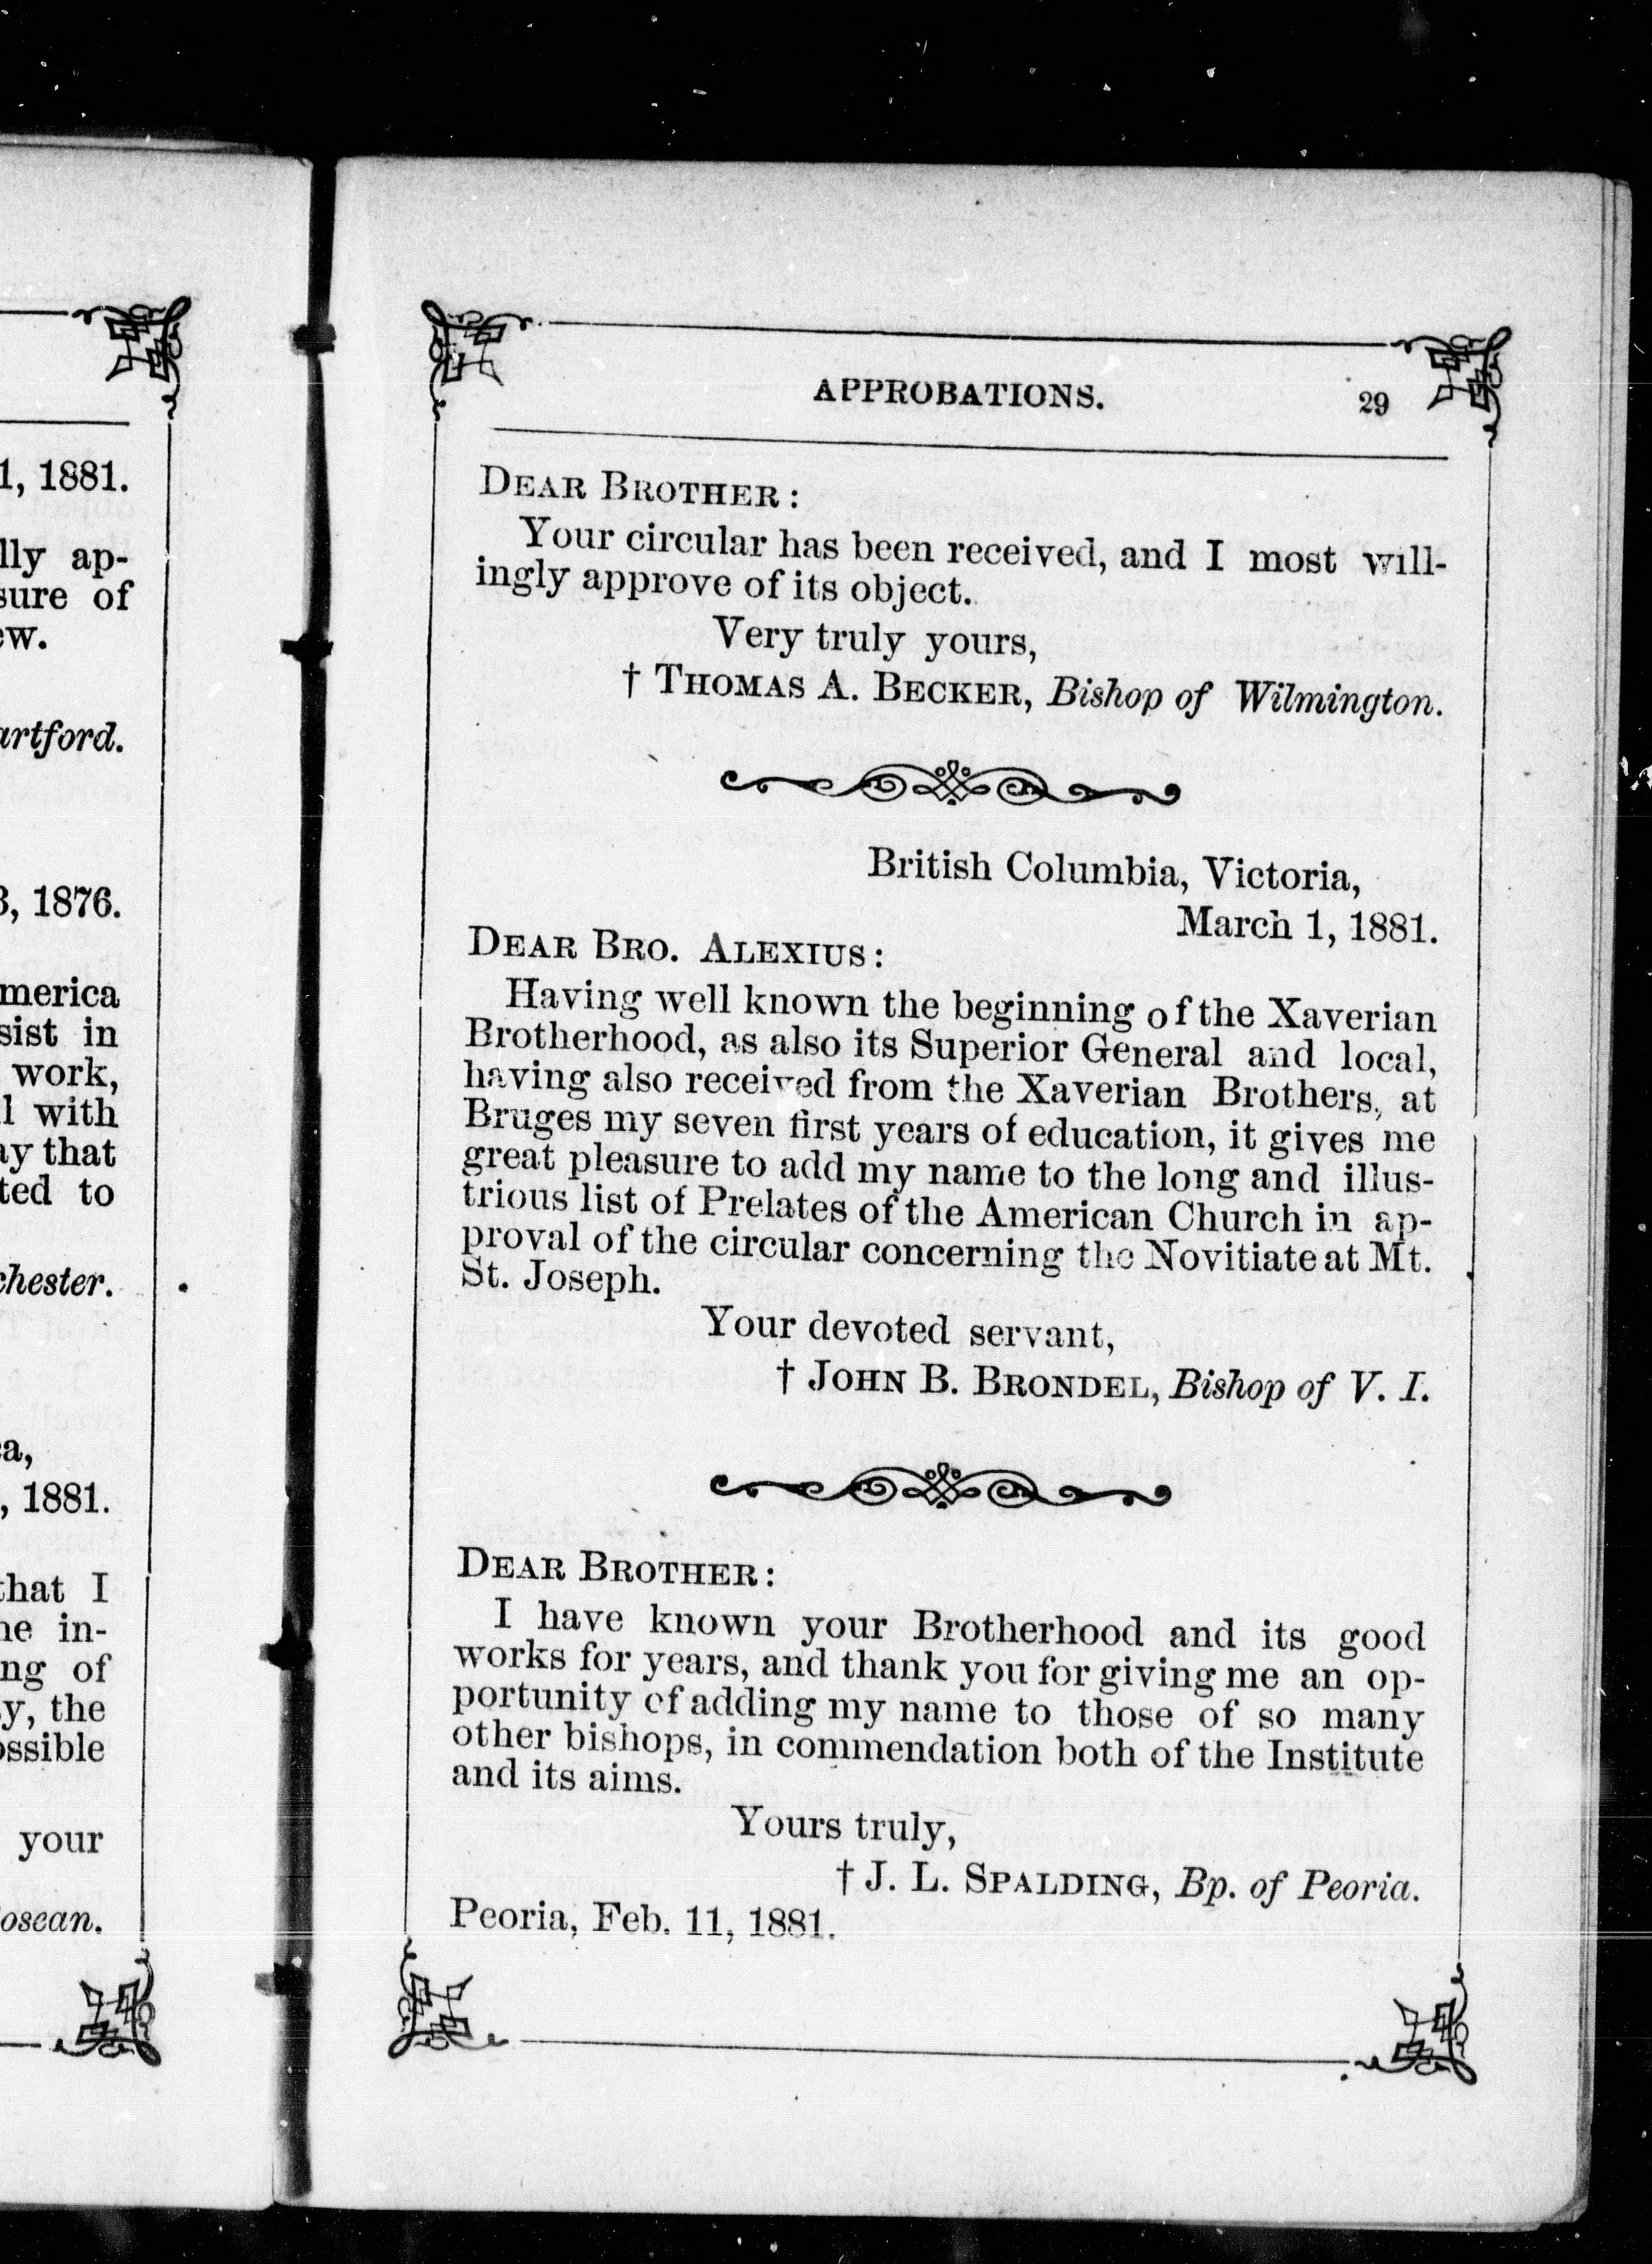 1, 1881.
lly ap-
sure of
ew.
artford.
3, 1876.
merica
sist in
work,
l with
ay that
ted to
chester.
a,
, 1881.
that I
ne in-
ng of
y, the
ossible
your
osean.
APPROBATIONS. 29
DEAR BROTHER:
Your circular has been received, and I most will-
ingly approve of its object.
Very truly yours,
† THOMAS A. BECKER, Bishop of Wilmington.
British Columbia, Victoria,
March 1, 1881.
DEAR BRO. ALEXIUS:
Having well known the beginning of the Xaverian
Brotherhood, as also its Superior General and local,
having also received from the Xaverian Brothers, at
Bruges my seven first years of education, it gives me
great pleasure to add my name to the long and illus-
trious list of Prelates of the American Church in ap-
proval of the circular concerning the Novitiate at Mt.
St. Joseph.
Your devoted servant,
† JOHN B. BRONDEL, Bishop of V. I.
DEAR BROTHER:
I have known your Brotherhood and its good
works for years, and thank you for giving me an op-
portunity of adding my name to those of so many
other bishops, in commendation both of the Institute
and its aims.
Yours truly,
† J. L. SPALDING, Bp. of Peoria.
Peoria, Feb. 11, 1881.